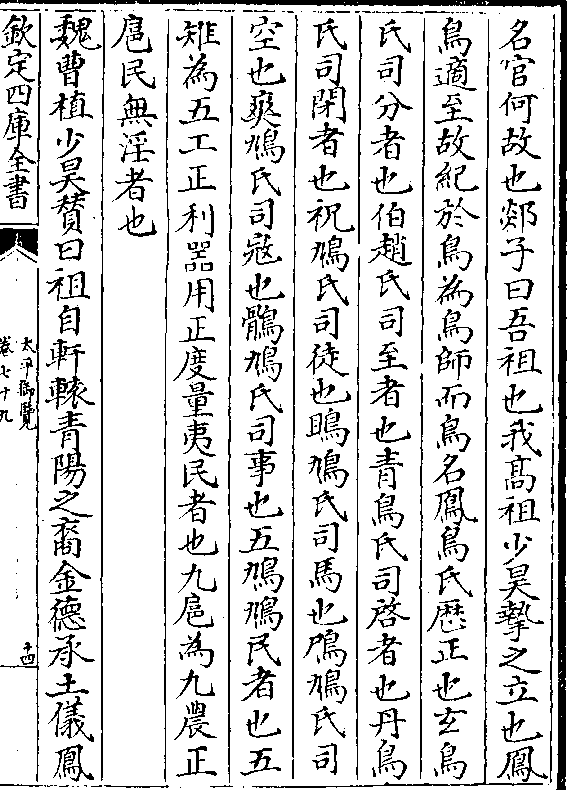 名官何故也郯子曰吾祖也我髙祖少昊摯之立也鳳
鳥適至故紀於鳥為鳥師而鳥名鳳鳥氏歴正也玄鳥
氏司分者也伯趙氏司至者也青鳥氏司啓者也丹鳥
氏司閉者也祝鳩氏司徒也鴡鳩氏司馬也鳲鳩氏司
空也爽鳩氏司寇也鶻鳩氏司事也五鳩鳩民者也五
雉為五工正利器用正度量夷民者也九扈為九農正
扈民無淫者也
魏曹植少昊賛曰祖自軒轅青陽之裔金德承土儀鳳
欽定四庫全書
太平御覽
卷七十九
十四